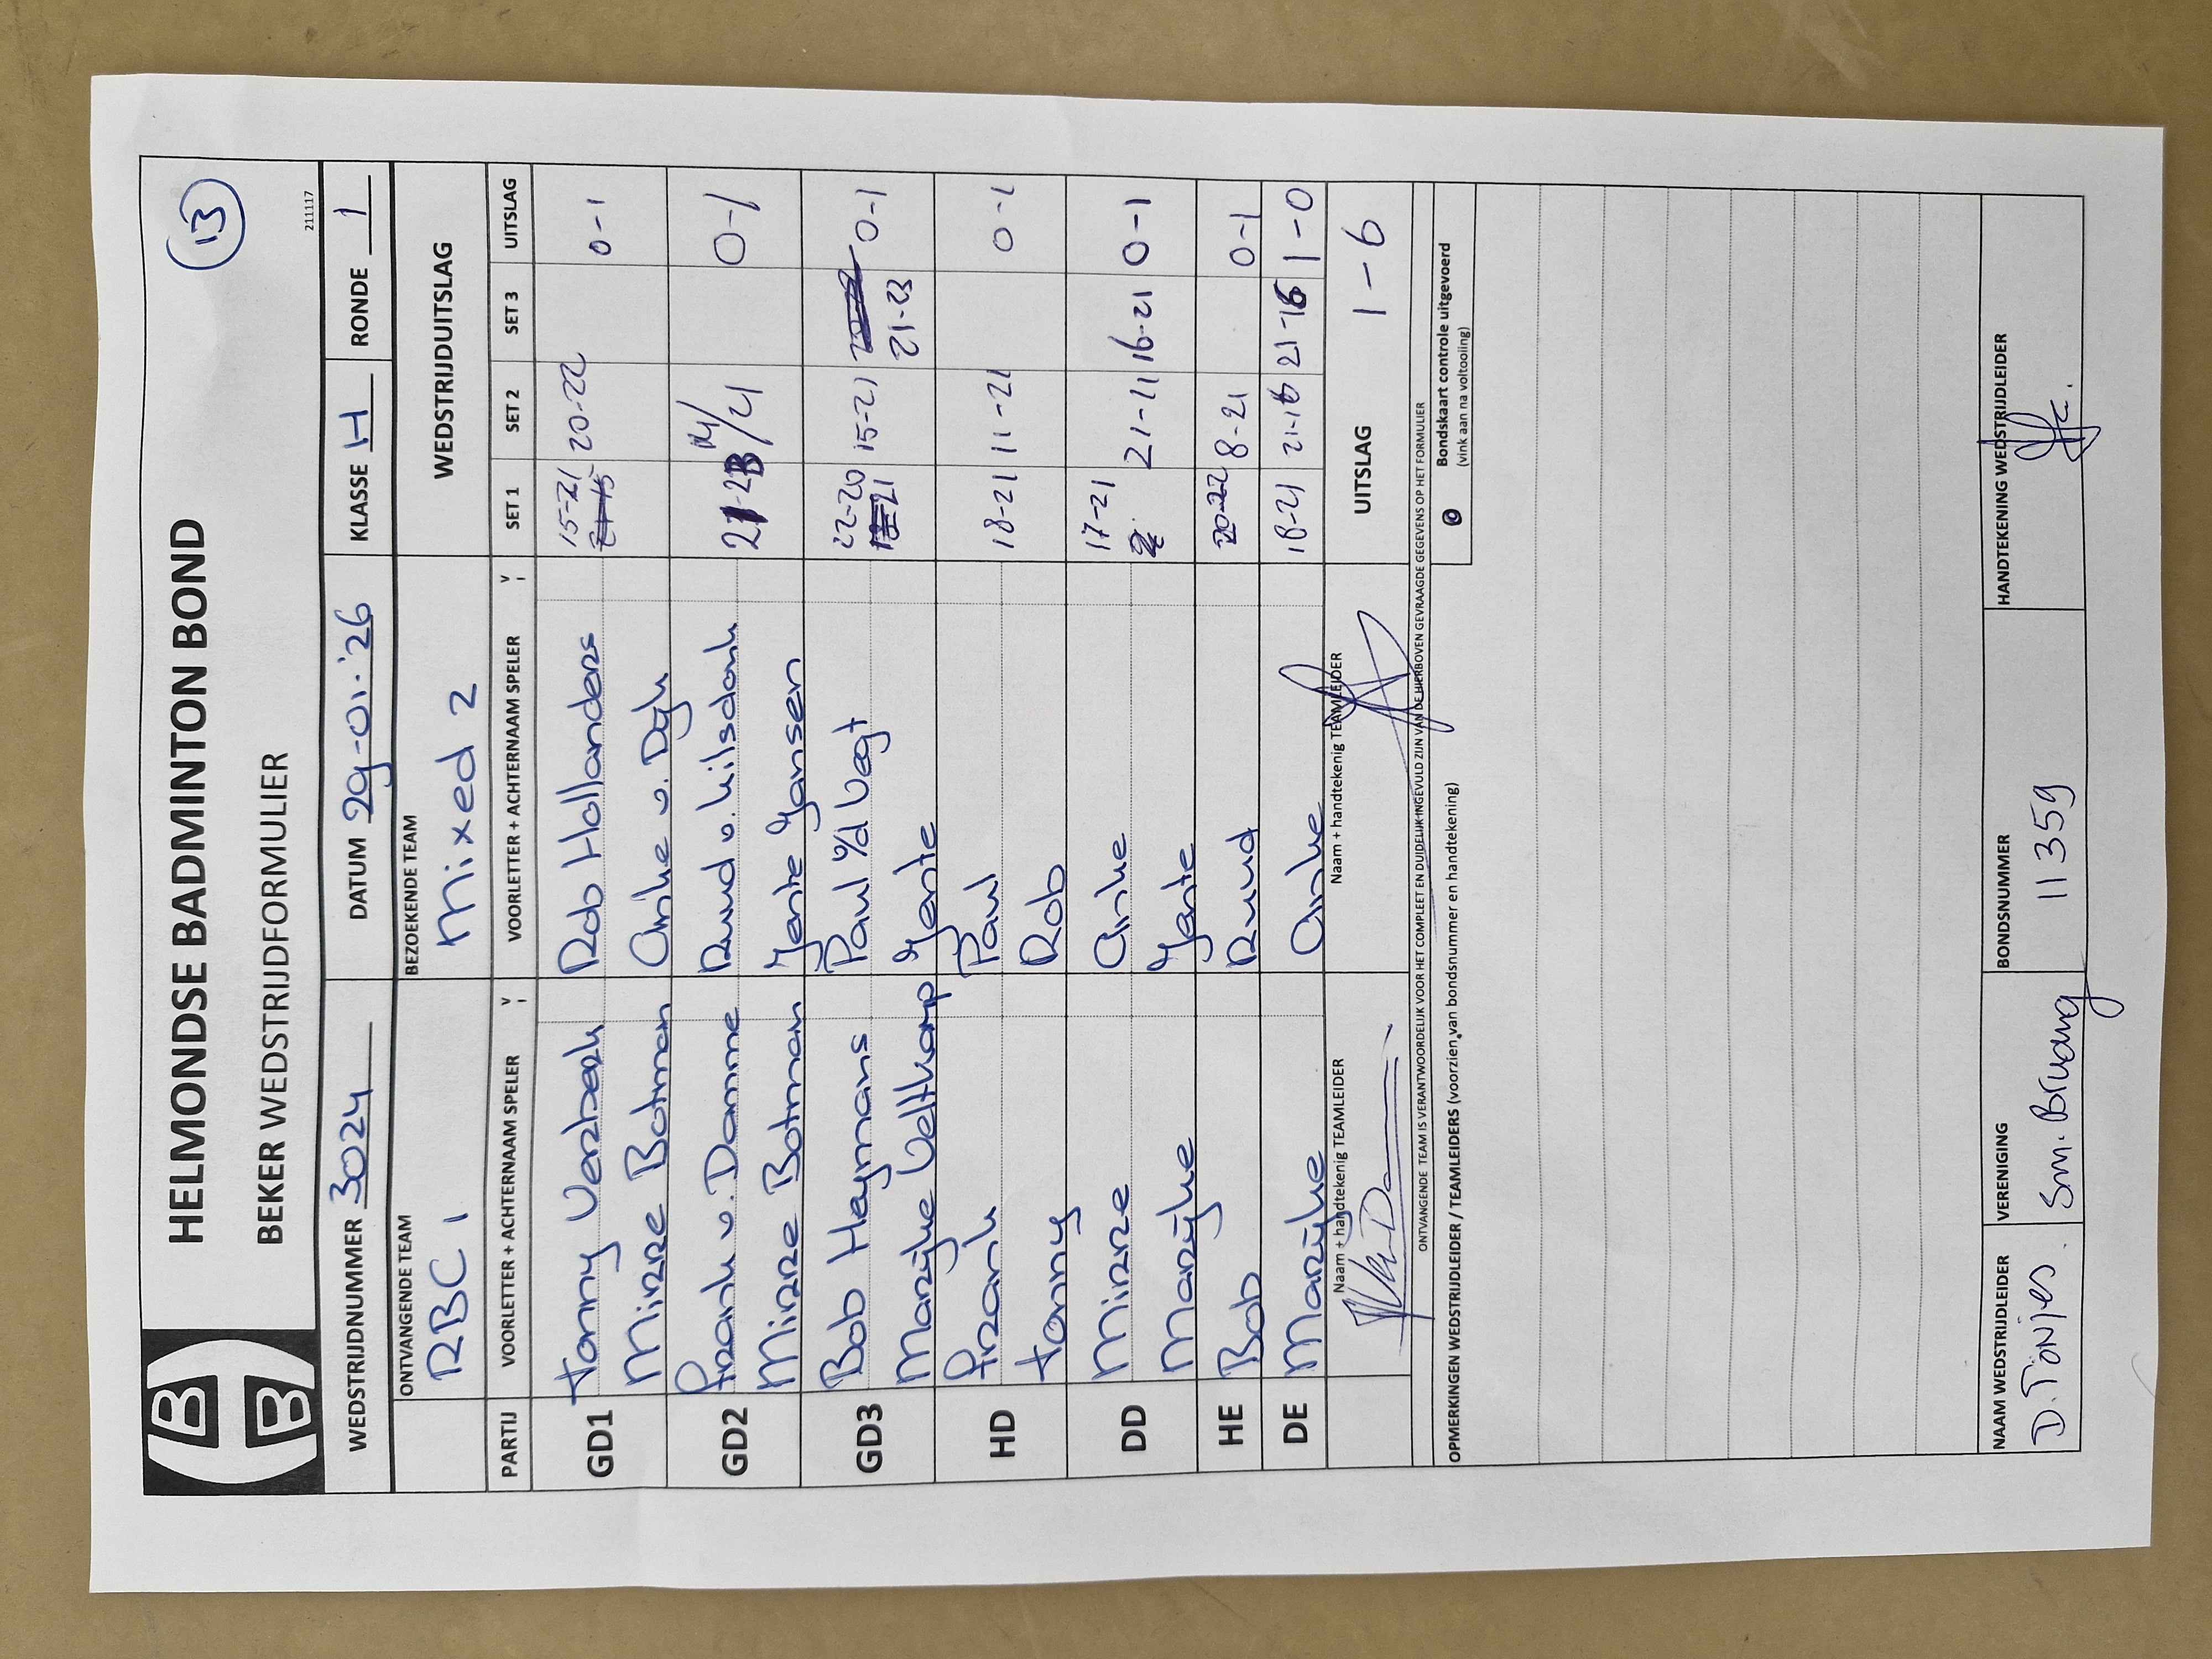 HELMONDSE BADMINTON BOND
13
BEKER WEDSTRIJDFORMULIER
211117
WEDSTRIJDNUMMER 3024 DATUM 29-01-'26 KLASSE H RONDE 1
ONTVANGENDE TEAM BEZOEKENDE TEAM WEDSTRIJDUITSLAG
RBC 1 Mixed 2
PARTIJ VOORLETTER + ACHTERNAAM SPELER V VOORLETTER + ACHTERNAAM SPELER V SET 1 SET 2 SET 3 UITSLAG
GD1 Tonny Verberk Rob Hollanders 15-21 20-22 0-1
Mirre Botman Anke v. Dijk 21-15
GD2 Frank v. Damme Ruud v. Hilsdonk 21-23 14/21 0-1
Mirre Botman Yente Jansen
GD3 Bob Heymans Paul v/d Vegt 22-20 15-21 0-1
Marijke Veltkamp Yente 21-23
HD Frank Paul 18-21 11-21 0-1
Tonny Rob
DD Mirre Anke 17-21 21-11 16-21 0-1
Marijke Yente
HE Bob Ruud 20-22 8-21 0-1
DE Marijke Anke 18-21 21-16 21-16 1-0
Naam + handtekenig TEAMLEIDER Naam + handtekenig TEAMLEIDER UITSLAG 1-6
ONTVANGENDE TEAM IS VERANTWOORDELIJK VOOR HET COMPLEET EN DUIDELIJK INGEVULD ZIJN VAN DE HIERBOVEN GEVRAAGDE GEGEVENS OP HET FORMULIER
OPMERKINGEN WEDSTRIJDLEIDER / TEAMLEIDERS (voorzien van bondsnummer en handtekening)
Bondskaart controle uitgevoerd
(vink aan na voltooling)
NAAM WEDSTRIJDLEIDER VERENIGING BONDSNUMMER HANDTEKENING WEDSTRIJDLEIDER
D. Tonjes. Sm. Brwang 11359